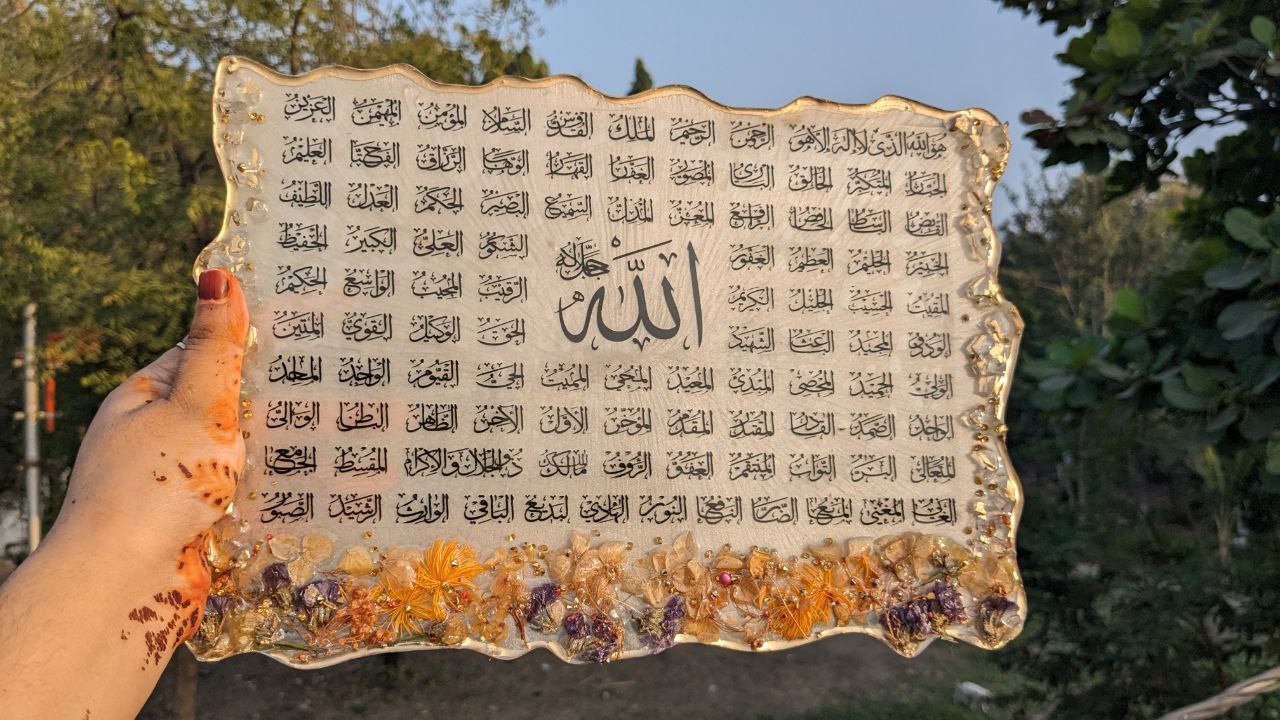 هو الله الذي لا اله الا هو الرحمن الرحيم الملك القدوس السلام المؤمن المهيمن العزيز
الجبار المتكبر الخالق البارئ المصور الغفار القهار الوهاب الرزاق الفتاح العليم
القابض الباسط الخافض الرافع المعز المذل السميع البصير الحكم العدل اللطيف
الخبير الحليم العظيم الغفور الشكور العلي الكبير الحفيظ
الله جل جلاله
المقيت الحسيب الجليل الكريم الرقيب المجيب الواسع الحكيم
الودود المجيد الباعث الشهيد الحق الوكيل القوي المتين
الولي الحميد المحصي المبدئ المعيد المحيي المميت الحي القيوم الواجد الماجد
الواحد الصمد القادر المقتدر المقدم المؤخر الاول الآخر الظاهر الباطن الوالي
المتعالي البر التواب المنتقم العفو الرءوف مالك الملك ذو الجلال والاكرام المقسط الجامع
الغني المغني المانع الضار النافع النور الهادي البديع الباقي الوارث الرشيد الصبور